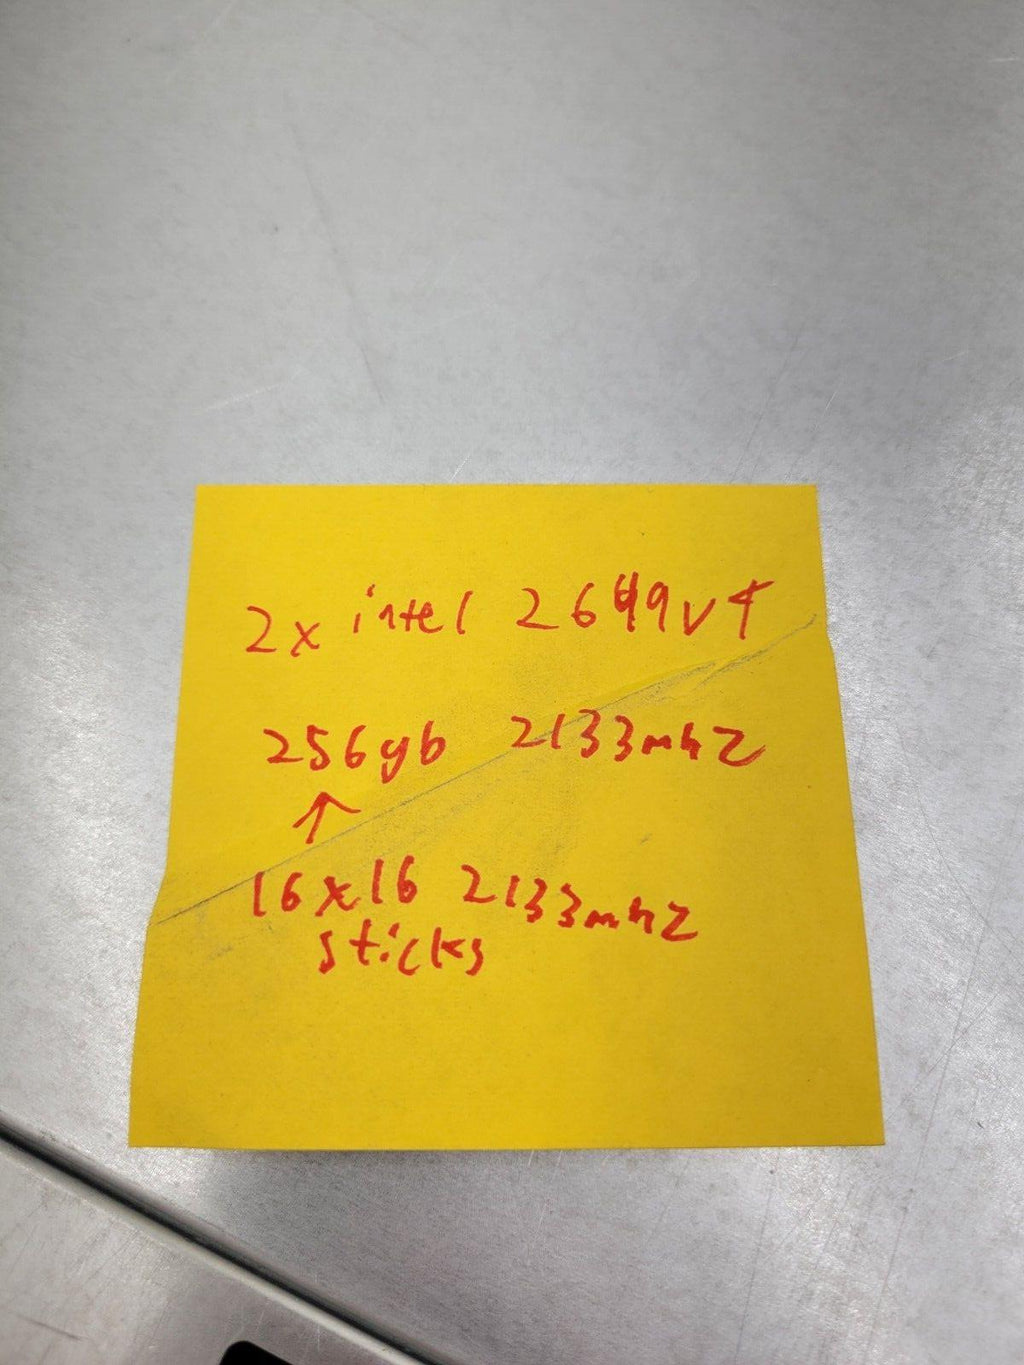 2x intel 2699v4
256gb 2133mhz
↑
16x16 2133mhz
sticks